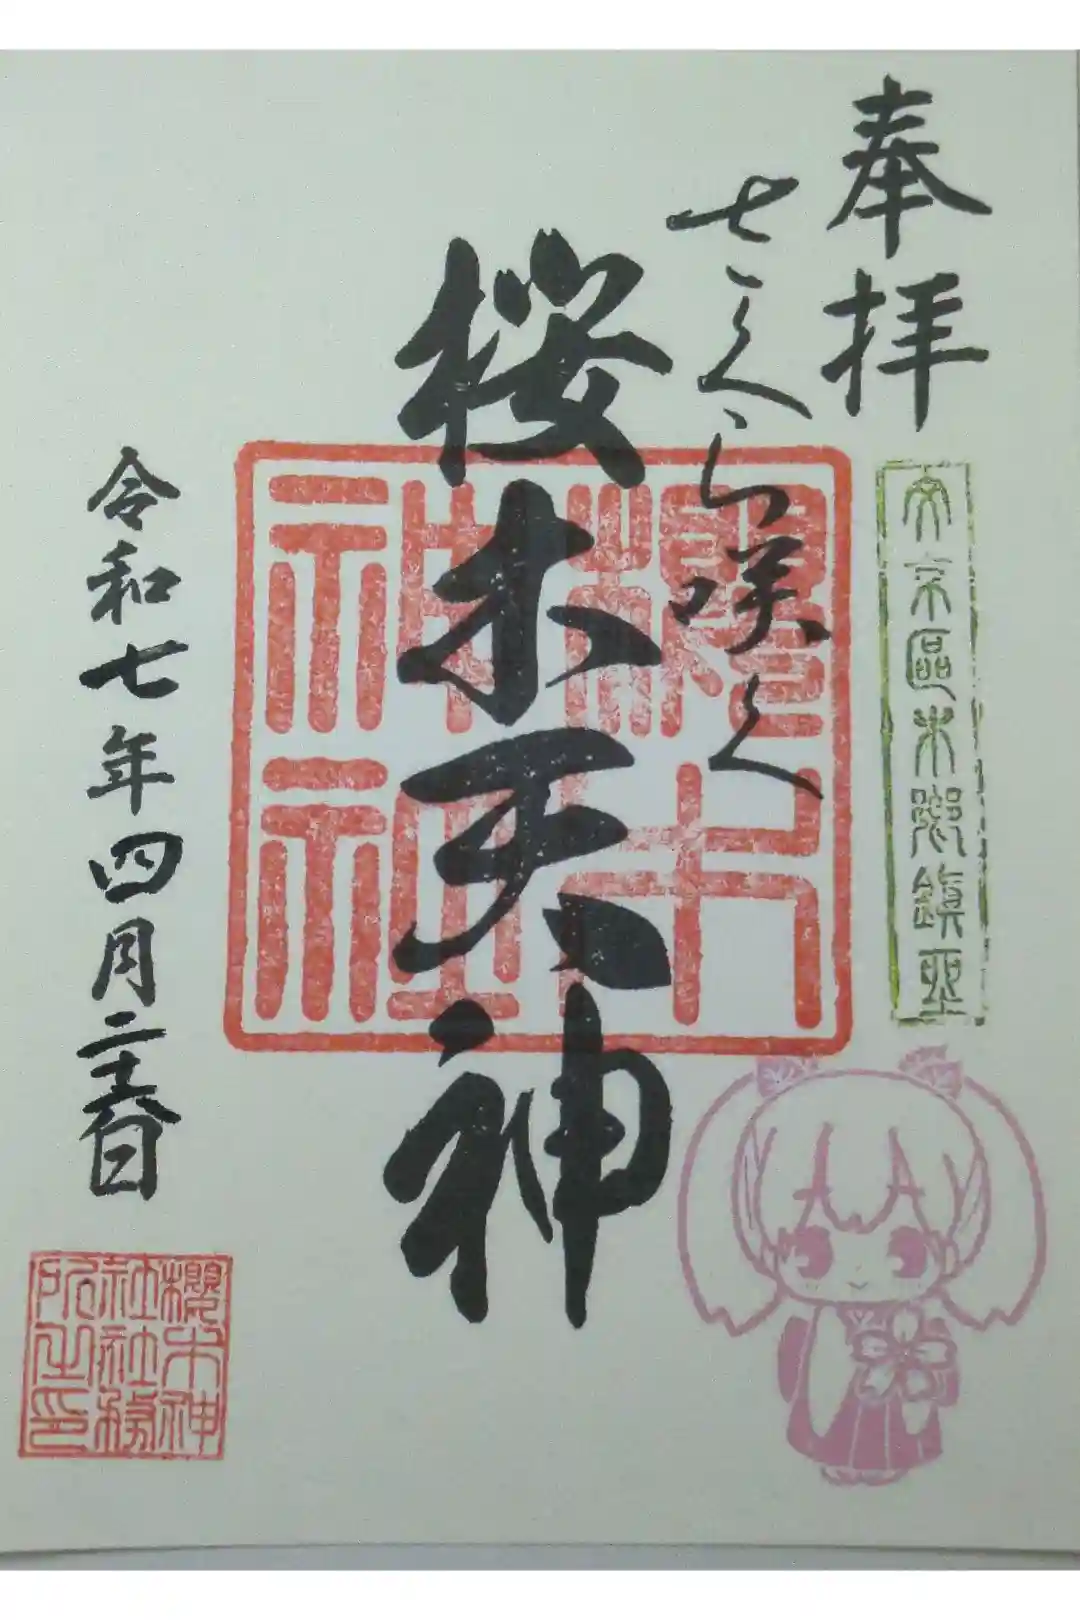 奉拝
文京區本郷鎮座
さくら咲く
桜木天神
櫻木
神社
令和七年四月二十六日
櫻木神
社社務
所之印